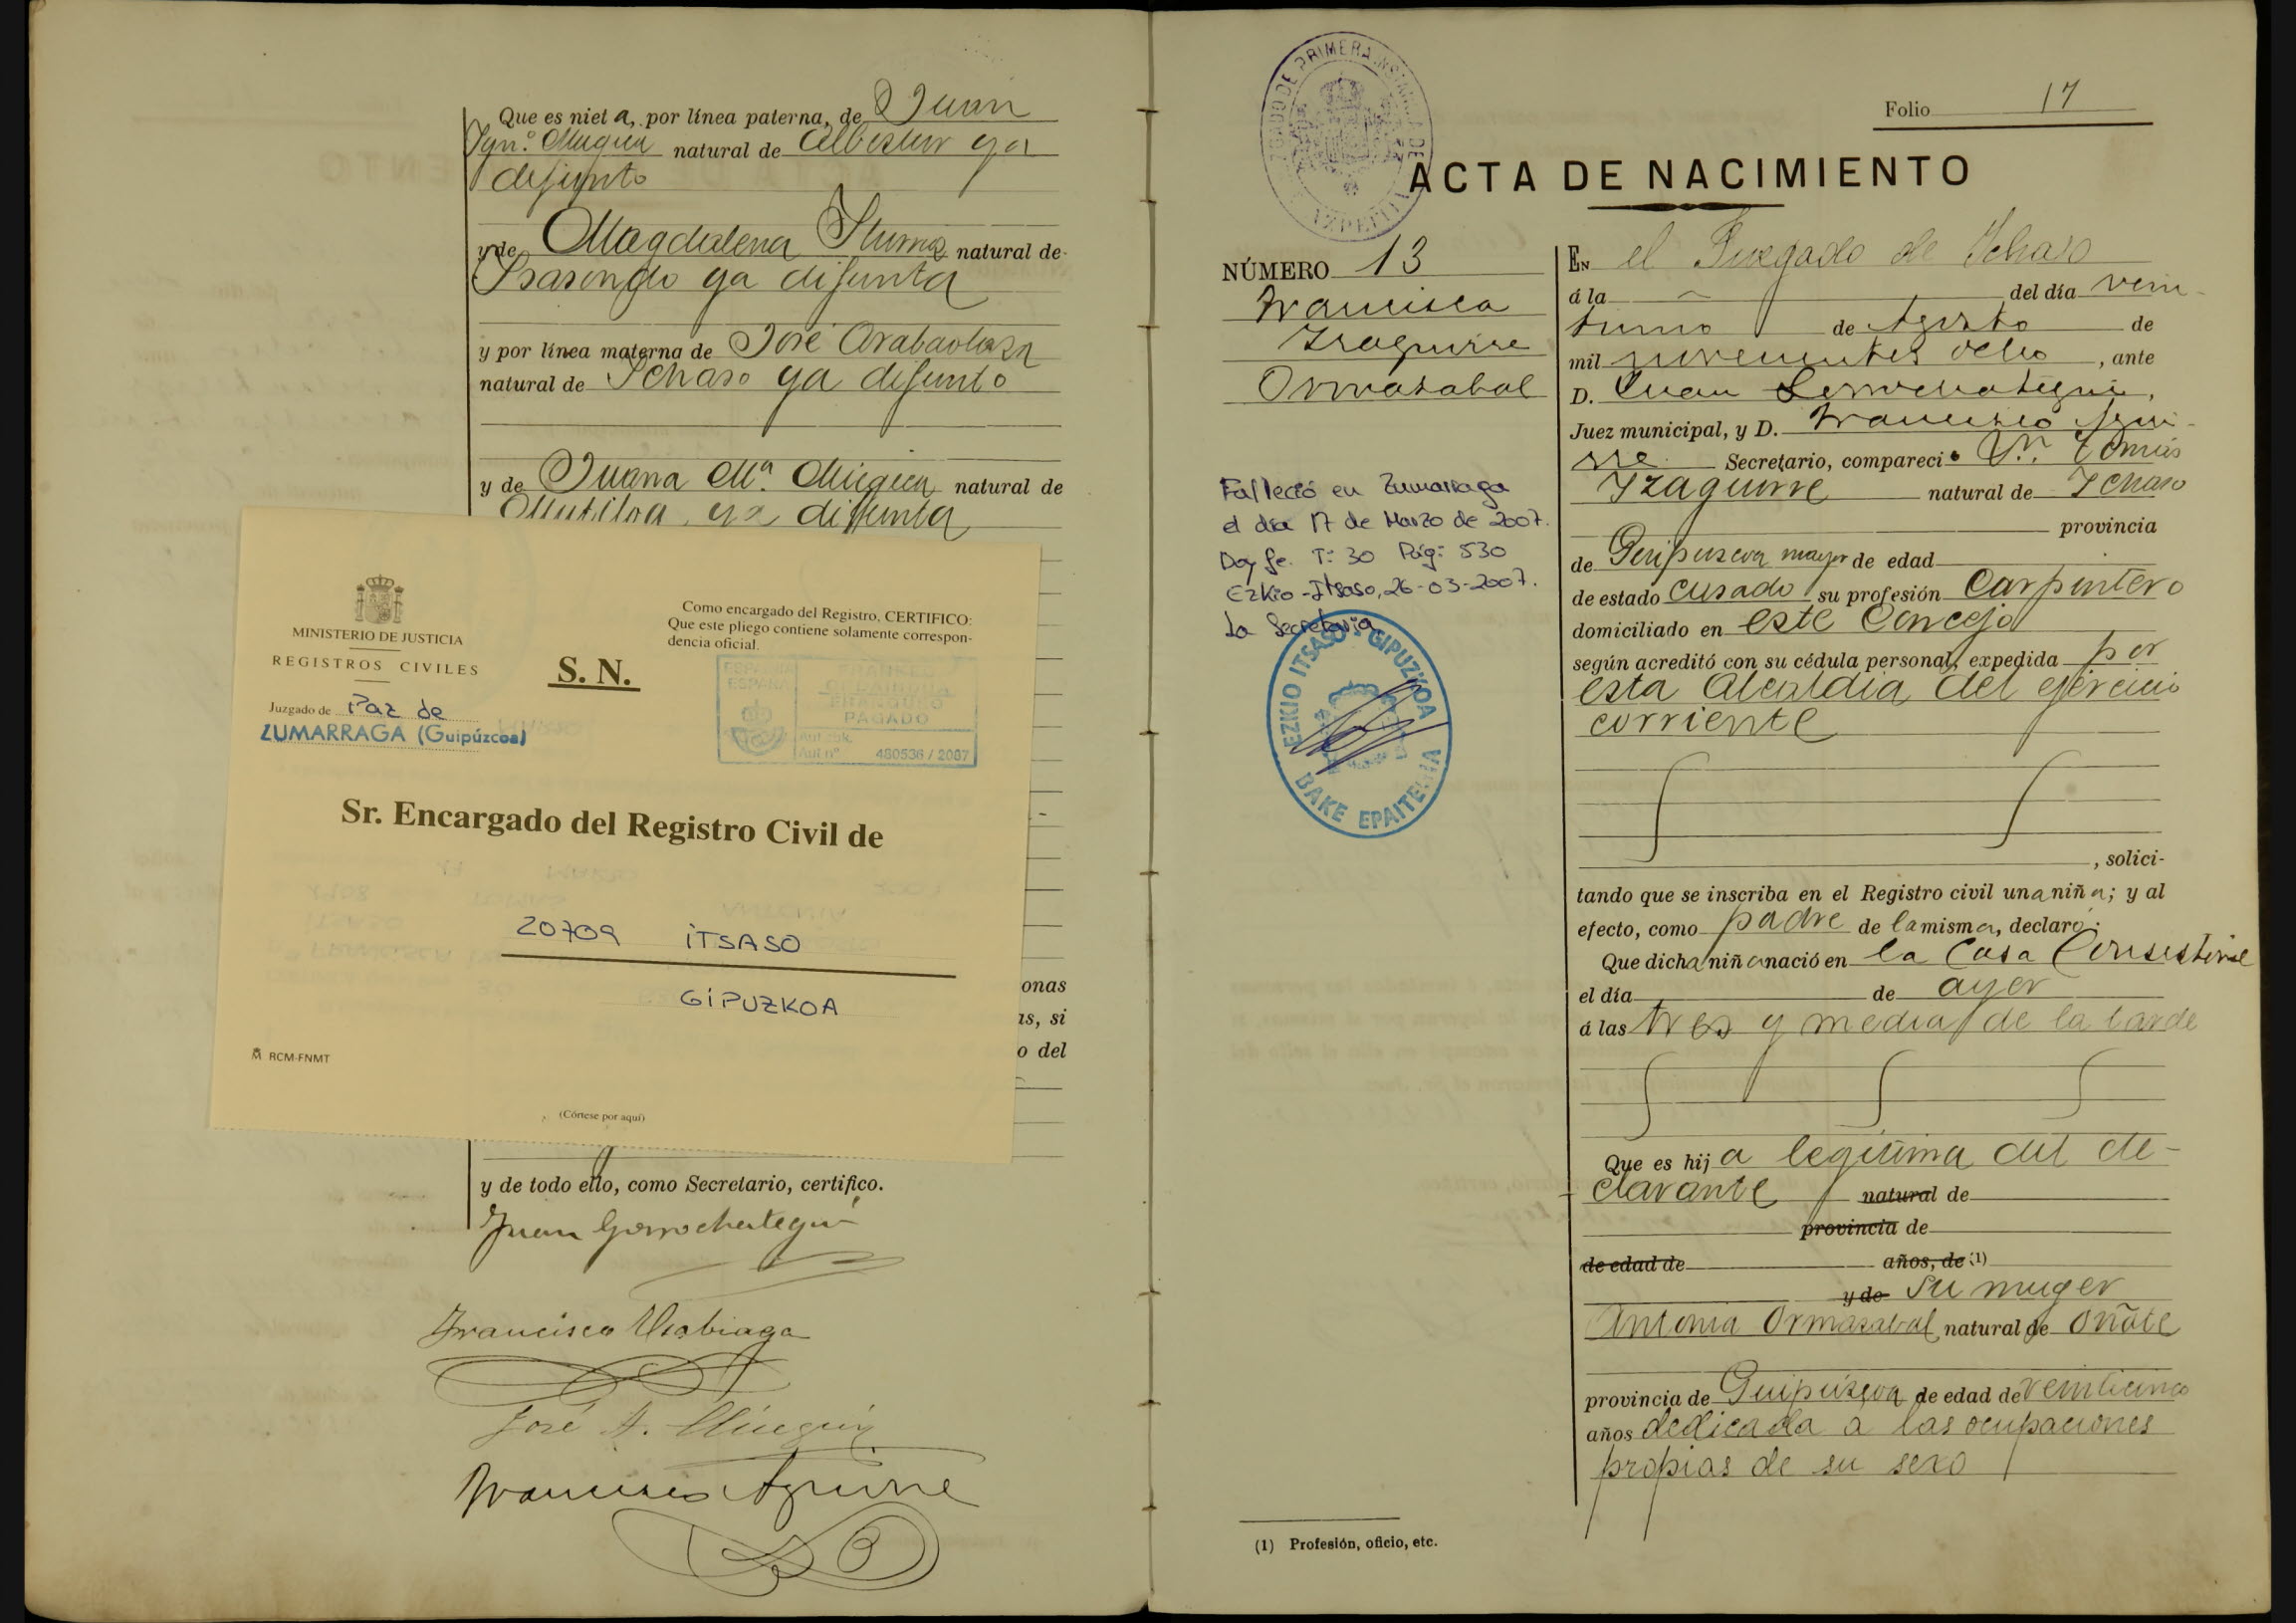 Que es niet a, por línea paterna, de Juan
Ygn.º Mugica natural de Albistur ya
difunto
y de Magdalena Yturrioz natural de
Ysasondo ya difunta
y por línea materna de José Arabaolaza
natural de Ychaso ya difunto
y de Juana Mª. Mugica natural de
Mutiloa ya difunta
MINISTERIO DE JUSTICIA
REGISTROS CIVILES
Juzgado de Paz de
ZUMARRAGA (Guipúzcoa)
S. N.
Como encargado del Registro, CERTIFICO:
Que este pliego contiene solamente correspon-
dencia oficial.
ESPAÑA
ESPAÑA
FRANQUEO
PAGADO
Aut. nº 480536 / 2087
Sr. Encargado del Registro Civil de
20709 iTSASO
GiPUZKOA
RCM-FNMT
(Córtese por aquí)
onas
as, si
o del
y de todo ello, como Secretario, certifico.
Juan Gorrochategui
Francisco
José A. Múgica
Francisco Aguirre
JUZGADO DE PRIMERA INSTANCIA DE AZPEITIA
Folio 17
ACTA DE NACIMIENTO
NÚMERO 13
Francisca
Yzaguirre
Ormazabal
Falleció en Zumarraga
el día 17 de Marzo de 2007.
Doy fe. T: 30 Pág: 530
Ezkio-Itsaso, 26-03-2007.
La Secretaria
EZKIO ITSASO - GIPUZKOA
BAKE EPAITEGIA
En el Juzgado de Ychaso
á la del día vein-
tiuno de Agosto de
mil novecientos ocho, ante
D. Juan Gorrochategui,
Juez municipal, y D. Francisco Agui-
rre Secretario, compareció Dn. Tomás
Yzaguirre natural de Ychaso
provincia
de Guipuzcoa mayor de edad
de estado casado su profesión Carpintero
domiciliado en este Concejo
según acreditó con su cédula personal, expedida por
esta Alcaldia del ejercicio
corriente
, solici-
tando que se inscriba en el Registro civil una niña; y al
efecto, como padre de la misma, declaró:
Que dicha niña nació en la Casa Consistorial
el día de ayer
á las tres y media de la tarde
Que es hij a legitima del de-
clarante natural de
provincia de
de edad de años, de (1)
y de su muger
Antonia Ormazabal natural de Oñate
provincia de Guipúzcoa de edad de veinticinco
años dedicada a las ocupaciones
propias de su sexo
(1) Profesión, oficio, etc.